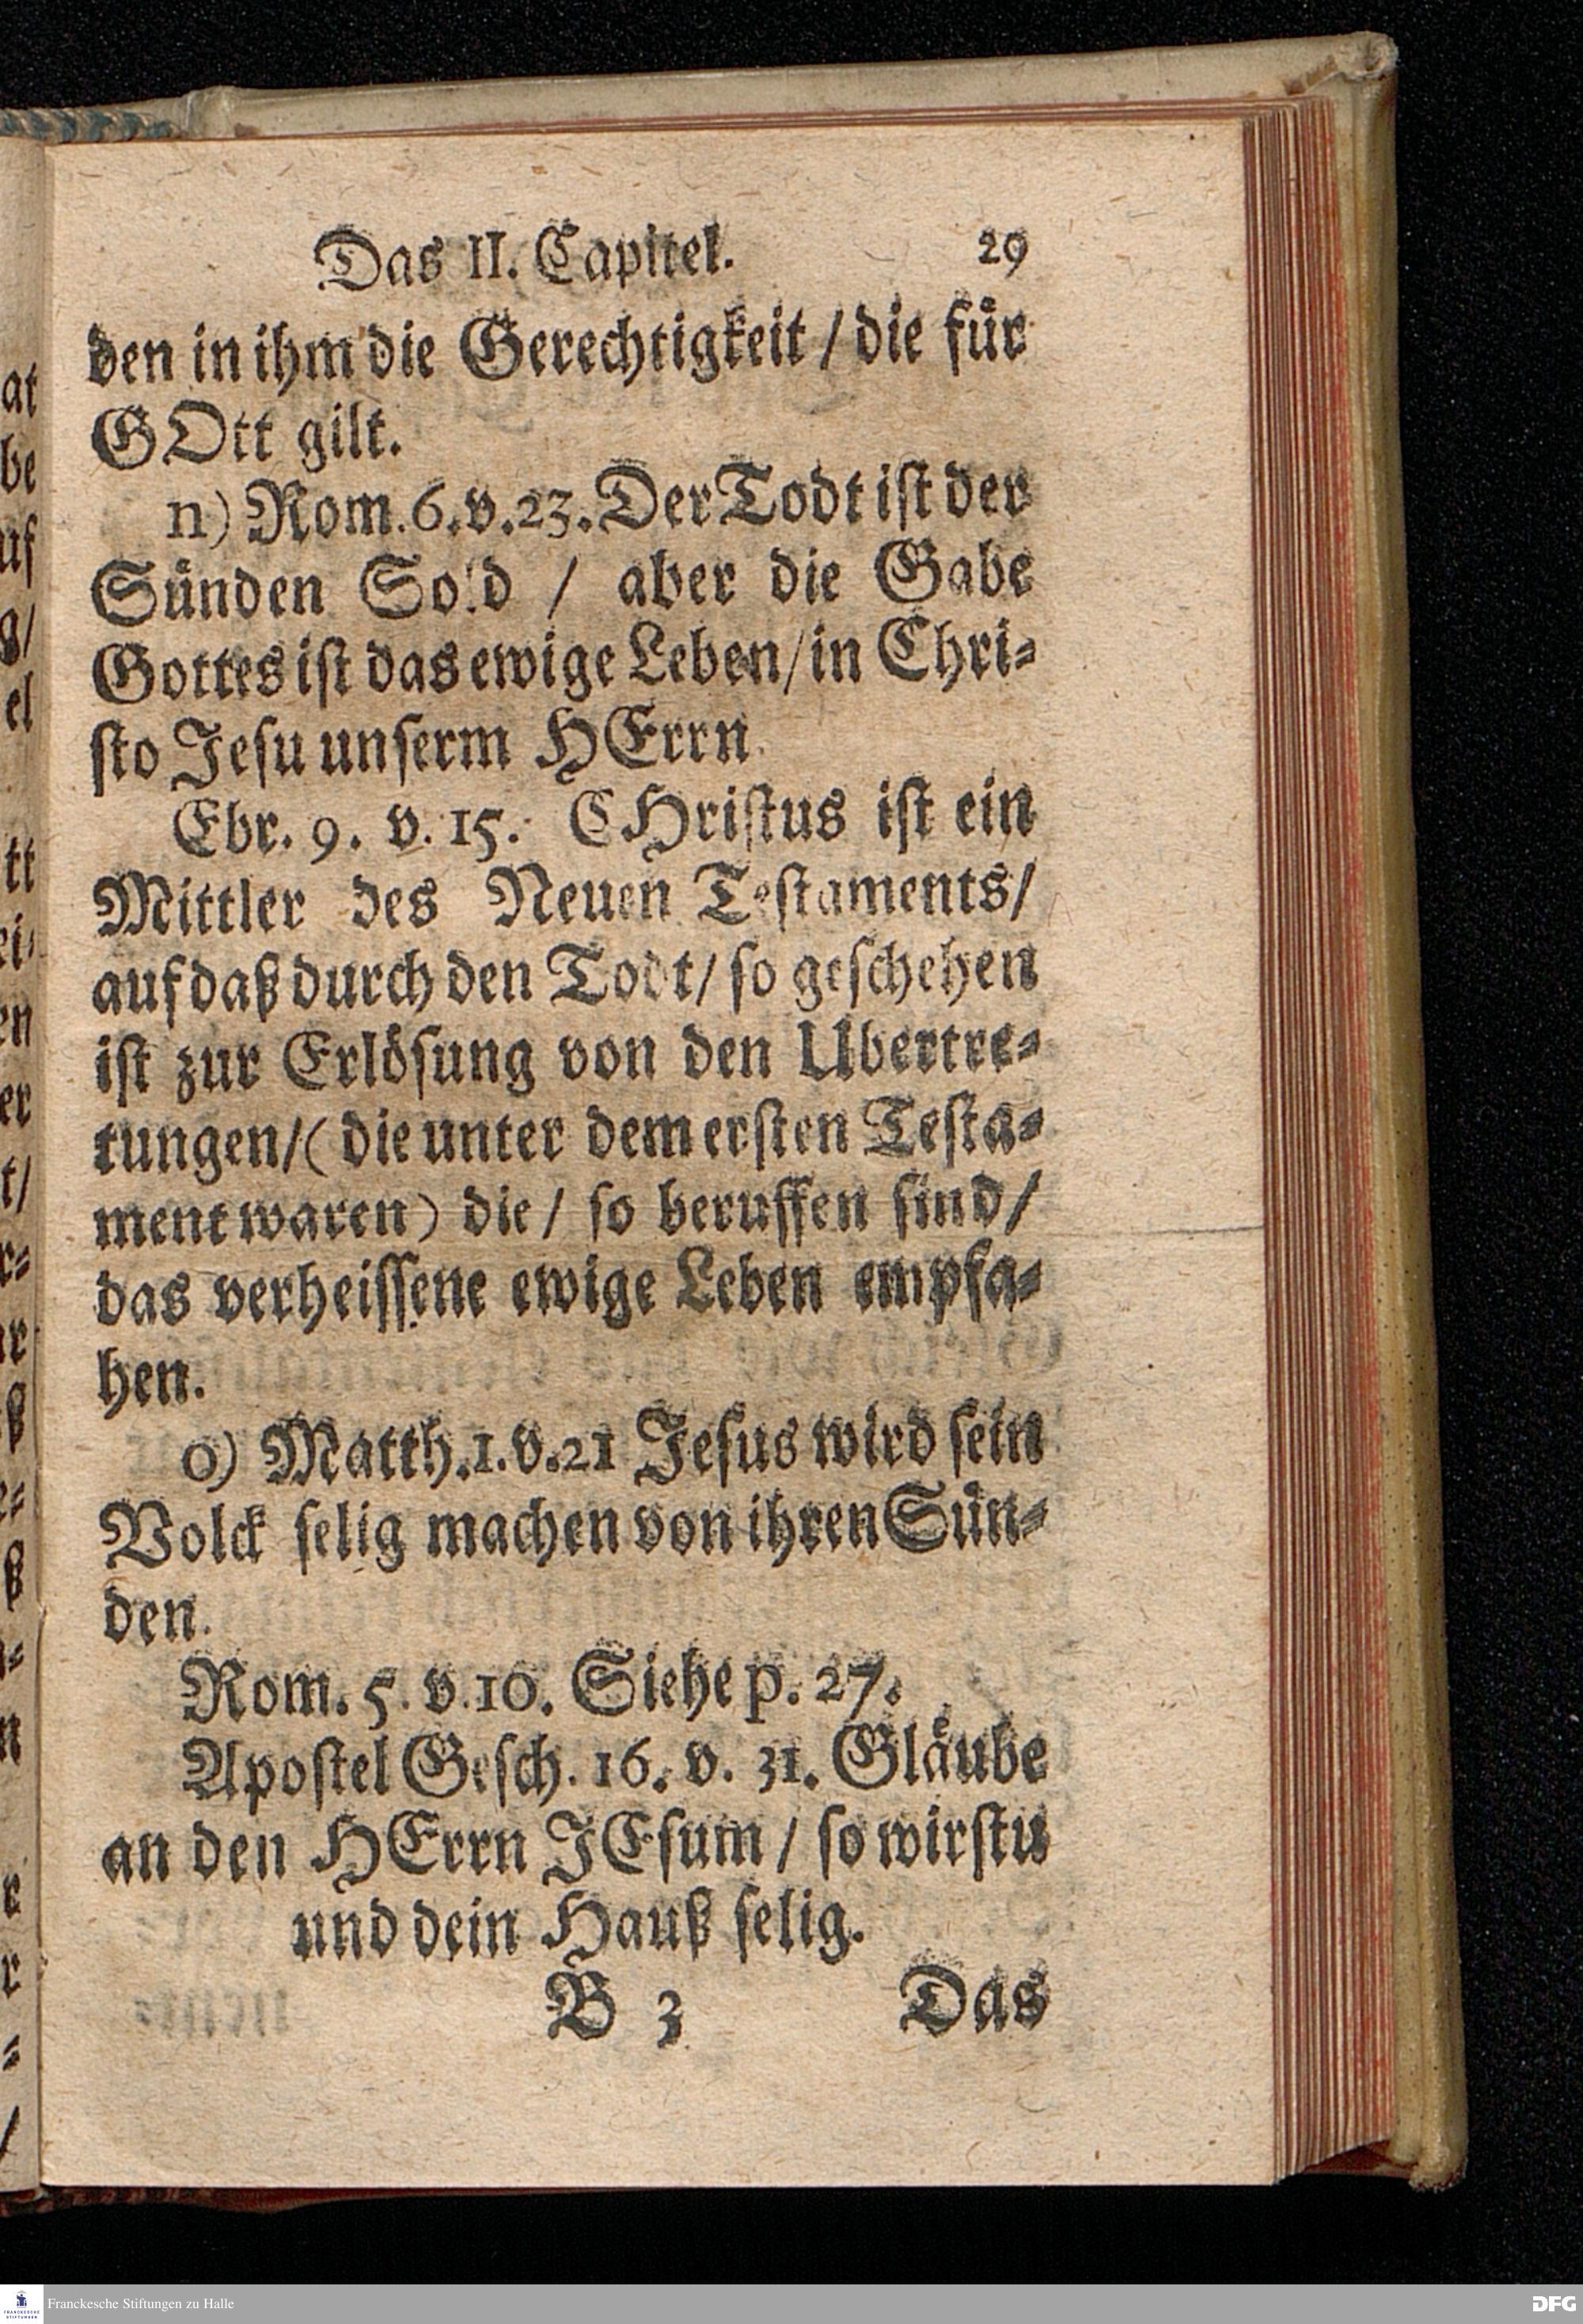 Das II. Capitel. 29
den in ihm die Gerechtigkeit / die für
GOtt gilt.
n) Rom. 6. v. 23. Der Todt ist der
Sünden Sold / aber die Gabe
Gottes ist das ewige Leben / in Chri-
sto Jesu unserm HErrn
Ebr. 9. v. 15. CHristus ist ein
Mittler des Neuen Testaments /
auf daß durch den Todt / so geschehen
ist zur Erlösung von den Ubertre-
tungen / ( die unter dem ersten Testa-
ment waren ) die / so beruffen sind /
das verheissene ewige Leben empfa-
hen.
o) Matth. 1. v. 21 Jesus wird sein
Volck selig machen von ihren Sün-
den.
Rom. 5. v. 10. Siehe p. 27.
Apostel Gesch. 16. v. 31. Gläube
an den HErrn JEsum / so wirstu
und dein Hauß selig.
B 3 Das
Franckesche Stiftungen zu Halle
DFG